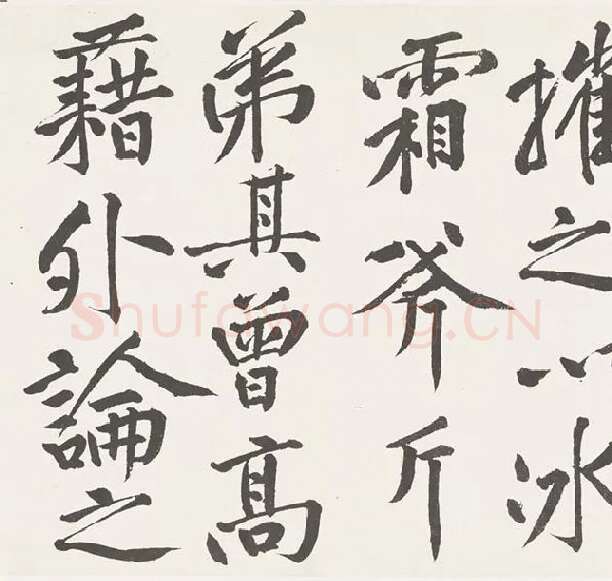 摧之以冰
霜斧斤
弟其曾高
藉外論之
Shufawang.CN